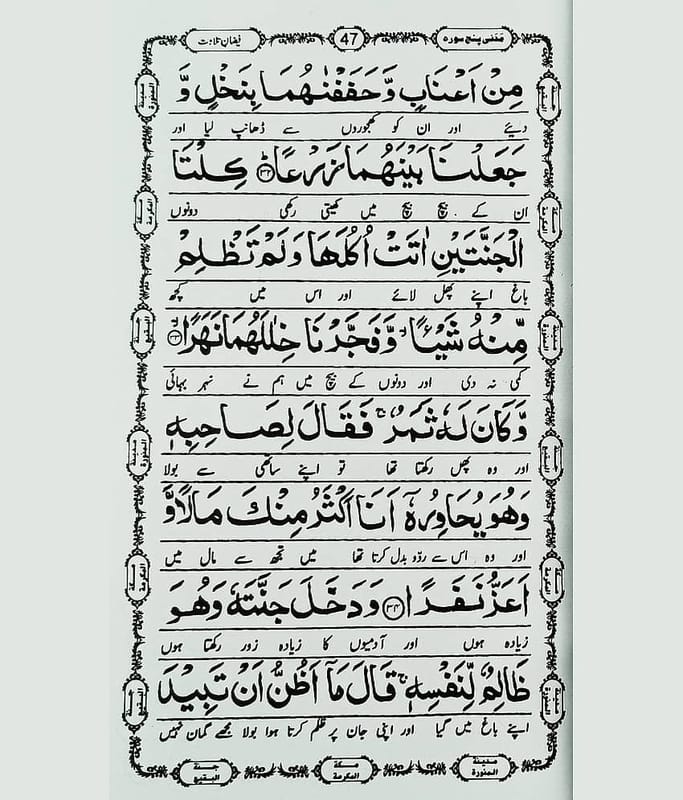 مَدَنی پنج سورہ
47
فیضانِ تلاوت
مِنْ اَعْنَابٍ وَّحَفَفْنٰهُمَا بِنَخْلٍ وَّ
دیئے اور ان کو کھجوروں سے ڈھانپ لیا اور
جَعَلْنَا بَیْنَهُمَا زَرْعًاؕ﴿۳۲﴾ كِلْتَا
ان کے بیچ بیچ میں کھیتی رکھی دونوں
الْجَنَّتَیْنِ اٰتَتْ اُكُلَهَا وَلَمْ تَظْلِمْ
باغ اپنے پھل لائے اور اس میں کچھ
مِّنْهُ شَیْـًٔاۙ وَّفَجَّرْنَا خِلٰلَهُمَا نَهَرًاۙ﴿۳۳﴾
کمی نہ دی اور دونوں کے بیچ میں ہم نے نہر بہائی
وَّكَانَ لَهٗ ثَمَرٌۚ فَقَالَ لِصَاحِبِهٖ
اور وہ پھل رکھتا تھا تو اپنے ساتھی سے بولا
وَهُوَ یُحَاوِرُهٗۤ اَنَا اَكْثَرُ مِنْكَ مَالًا وَّ
اور وہ اس سے ردّو بدل کرتا تھا میں تجھ سے مال میں
اَعَزُّ نَفَرًا﴿۳۴﴾ وَدَخَلَ جَنَّتَهٗ وَهُوَ
زیادہ ہوں اور آدمیوں کا زیادہ زور رکھتا ہوں
ظَالِمٌ لِّنَفْسِهٖۚ قَالَ مَاۤ اَظُنُّ اَنْ تَبِیْدَ
اپنے باغ میں گیا اور اپنی جان پر ظلم کرتا ہوا بولا مجھے گمان نہیں
مدینة المنورة
مكة المكرمة
جنة البقیع